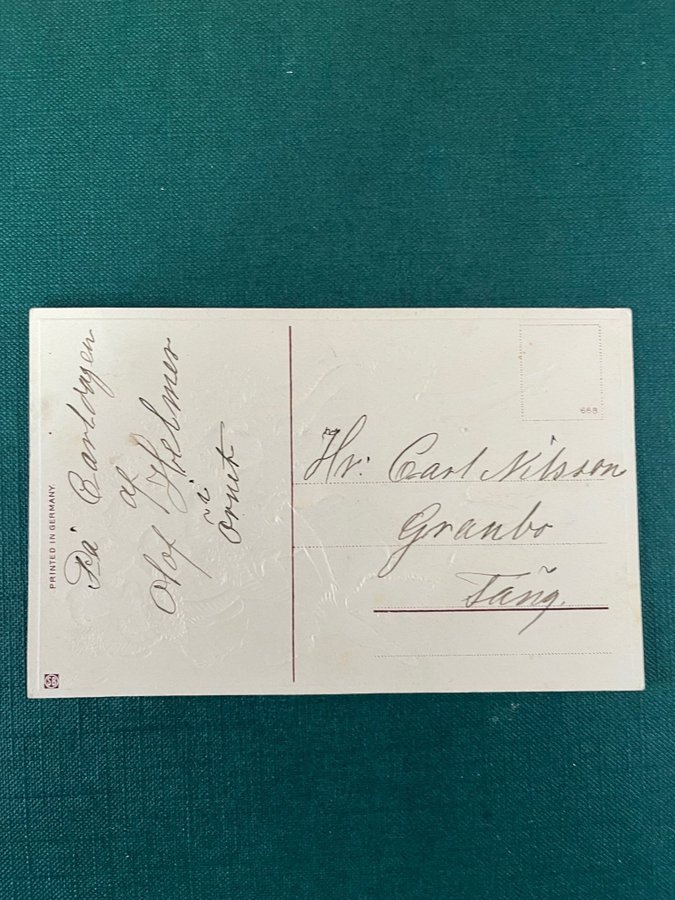 På Carldagen
af
Olof Hjelmer
i
Örnet
Hr: Carl Nilsson
Granbo
Tång.
PRINTED IN GERMANY.
668